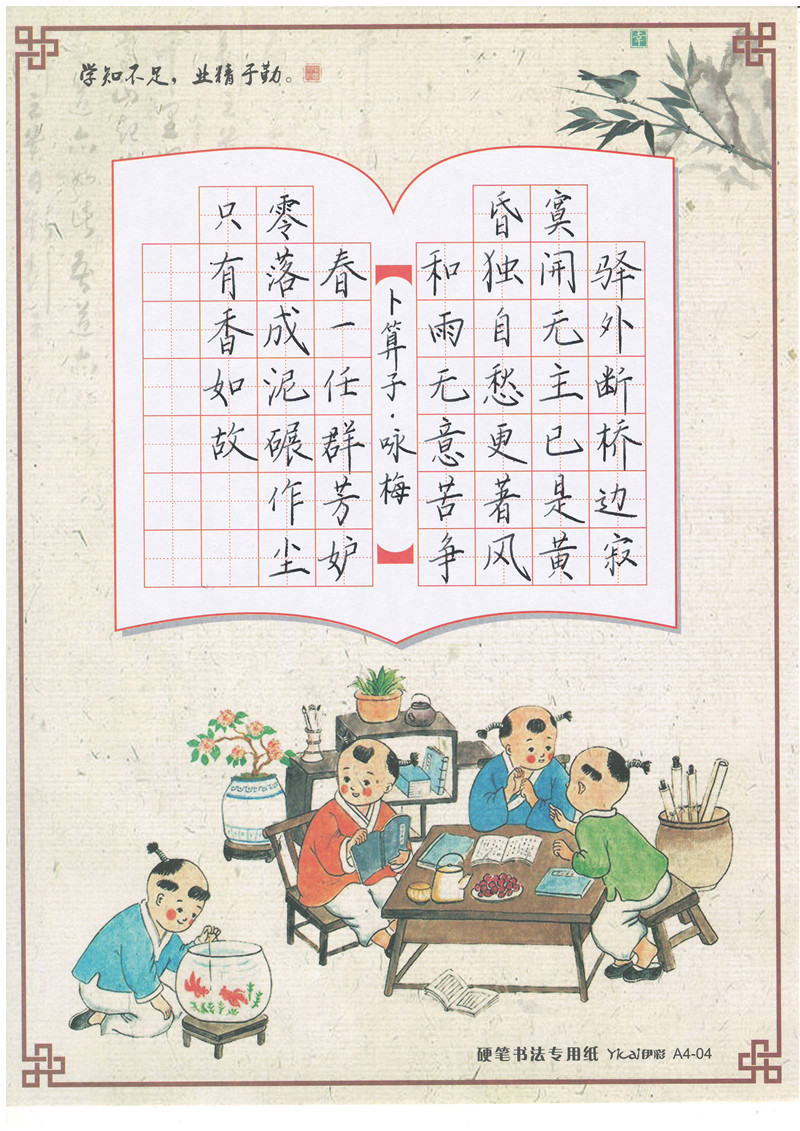 学知不足，业精于勤。
驿外断桥边寂
寞开无主已是黄
昏独自愁更著风
和雨无意苦争
卜算子·咏梅
春一任群芳妒
零落成泥碾作尘
只有香如故
硬笔书法专用纸 Yicai伊彩 A4-04